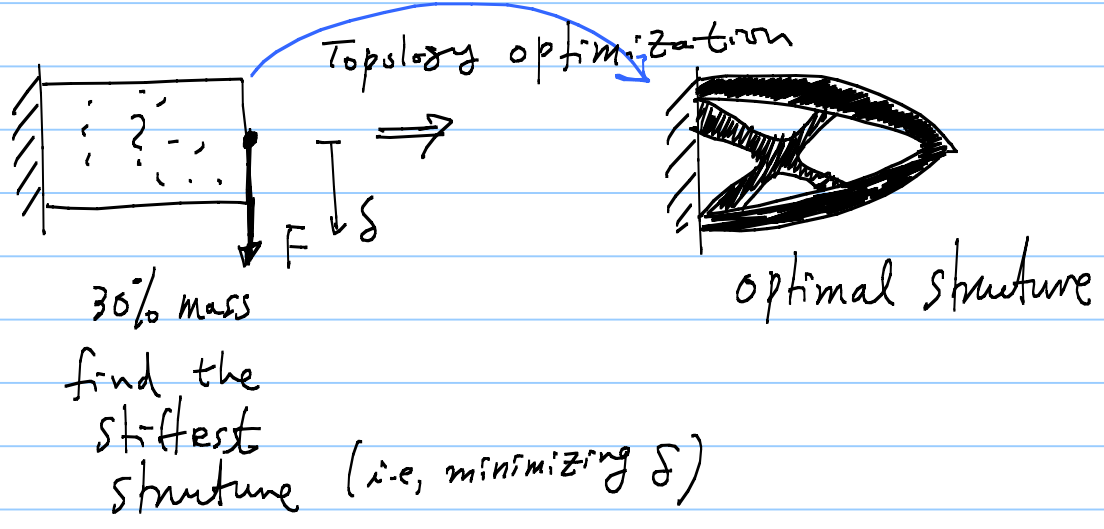 Topology optimization
?
F
δ
30% mass
find the
stiffest
structure (i.e, minimizing δ)
optimal structure